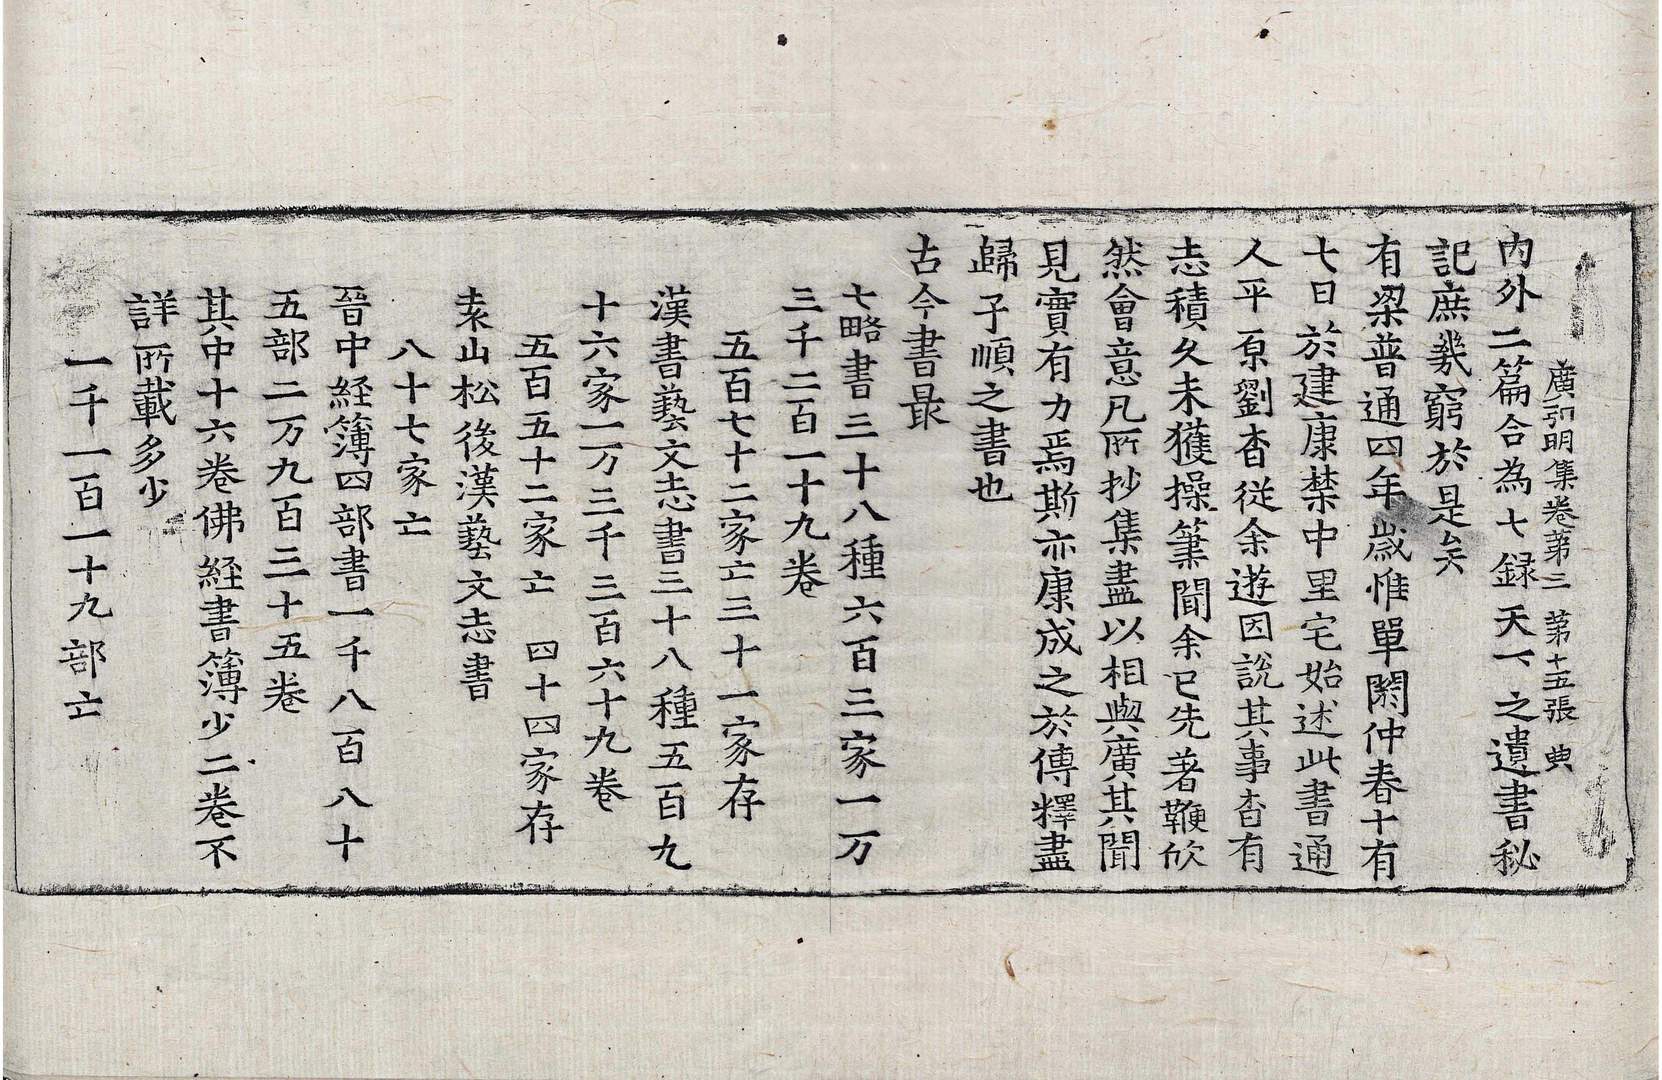 廣弘明集卷第三　第十五張　典
內外二篇合為七録天下之遺書秘
記庶幾窮於是矣
有梁普通四年歲惟單閼仲春十有
七日於建康禁中里宅始述此書通
人平原劉杳從余遊因說其事杳有
志積久未獲操筆聞余已先著鞭欣
然會意凡所抄集盡以相與廣其聞
見實有力焉斯亦康成之於傳釋盡
歸子順之書也
古今書最
七略書三十八種六百三家一万
三千二百一十九卷
五百七十二家亡三十一家存
漢書藝文志書三十八種五百九
十六家一万三千三百六十九卷
五百五十二家亡　四十四家存
袁山松後漢藝文志書
八十七家亡
晉中経簿四部書一千八百八十
五部二万九百三十五卷
其中十六卷佛経書簿少二卷不
詳所載多少
一千一百一十九部亡